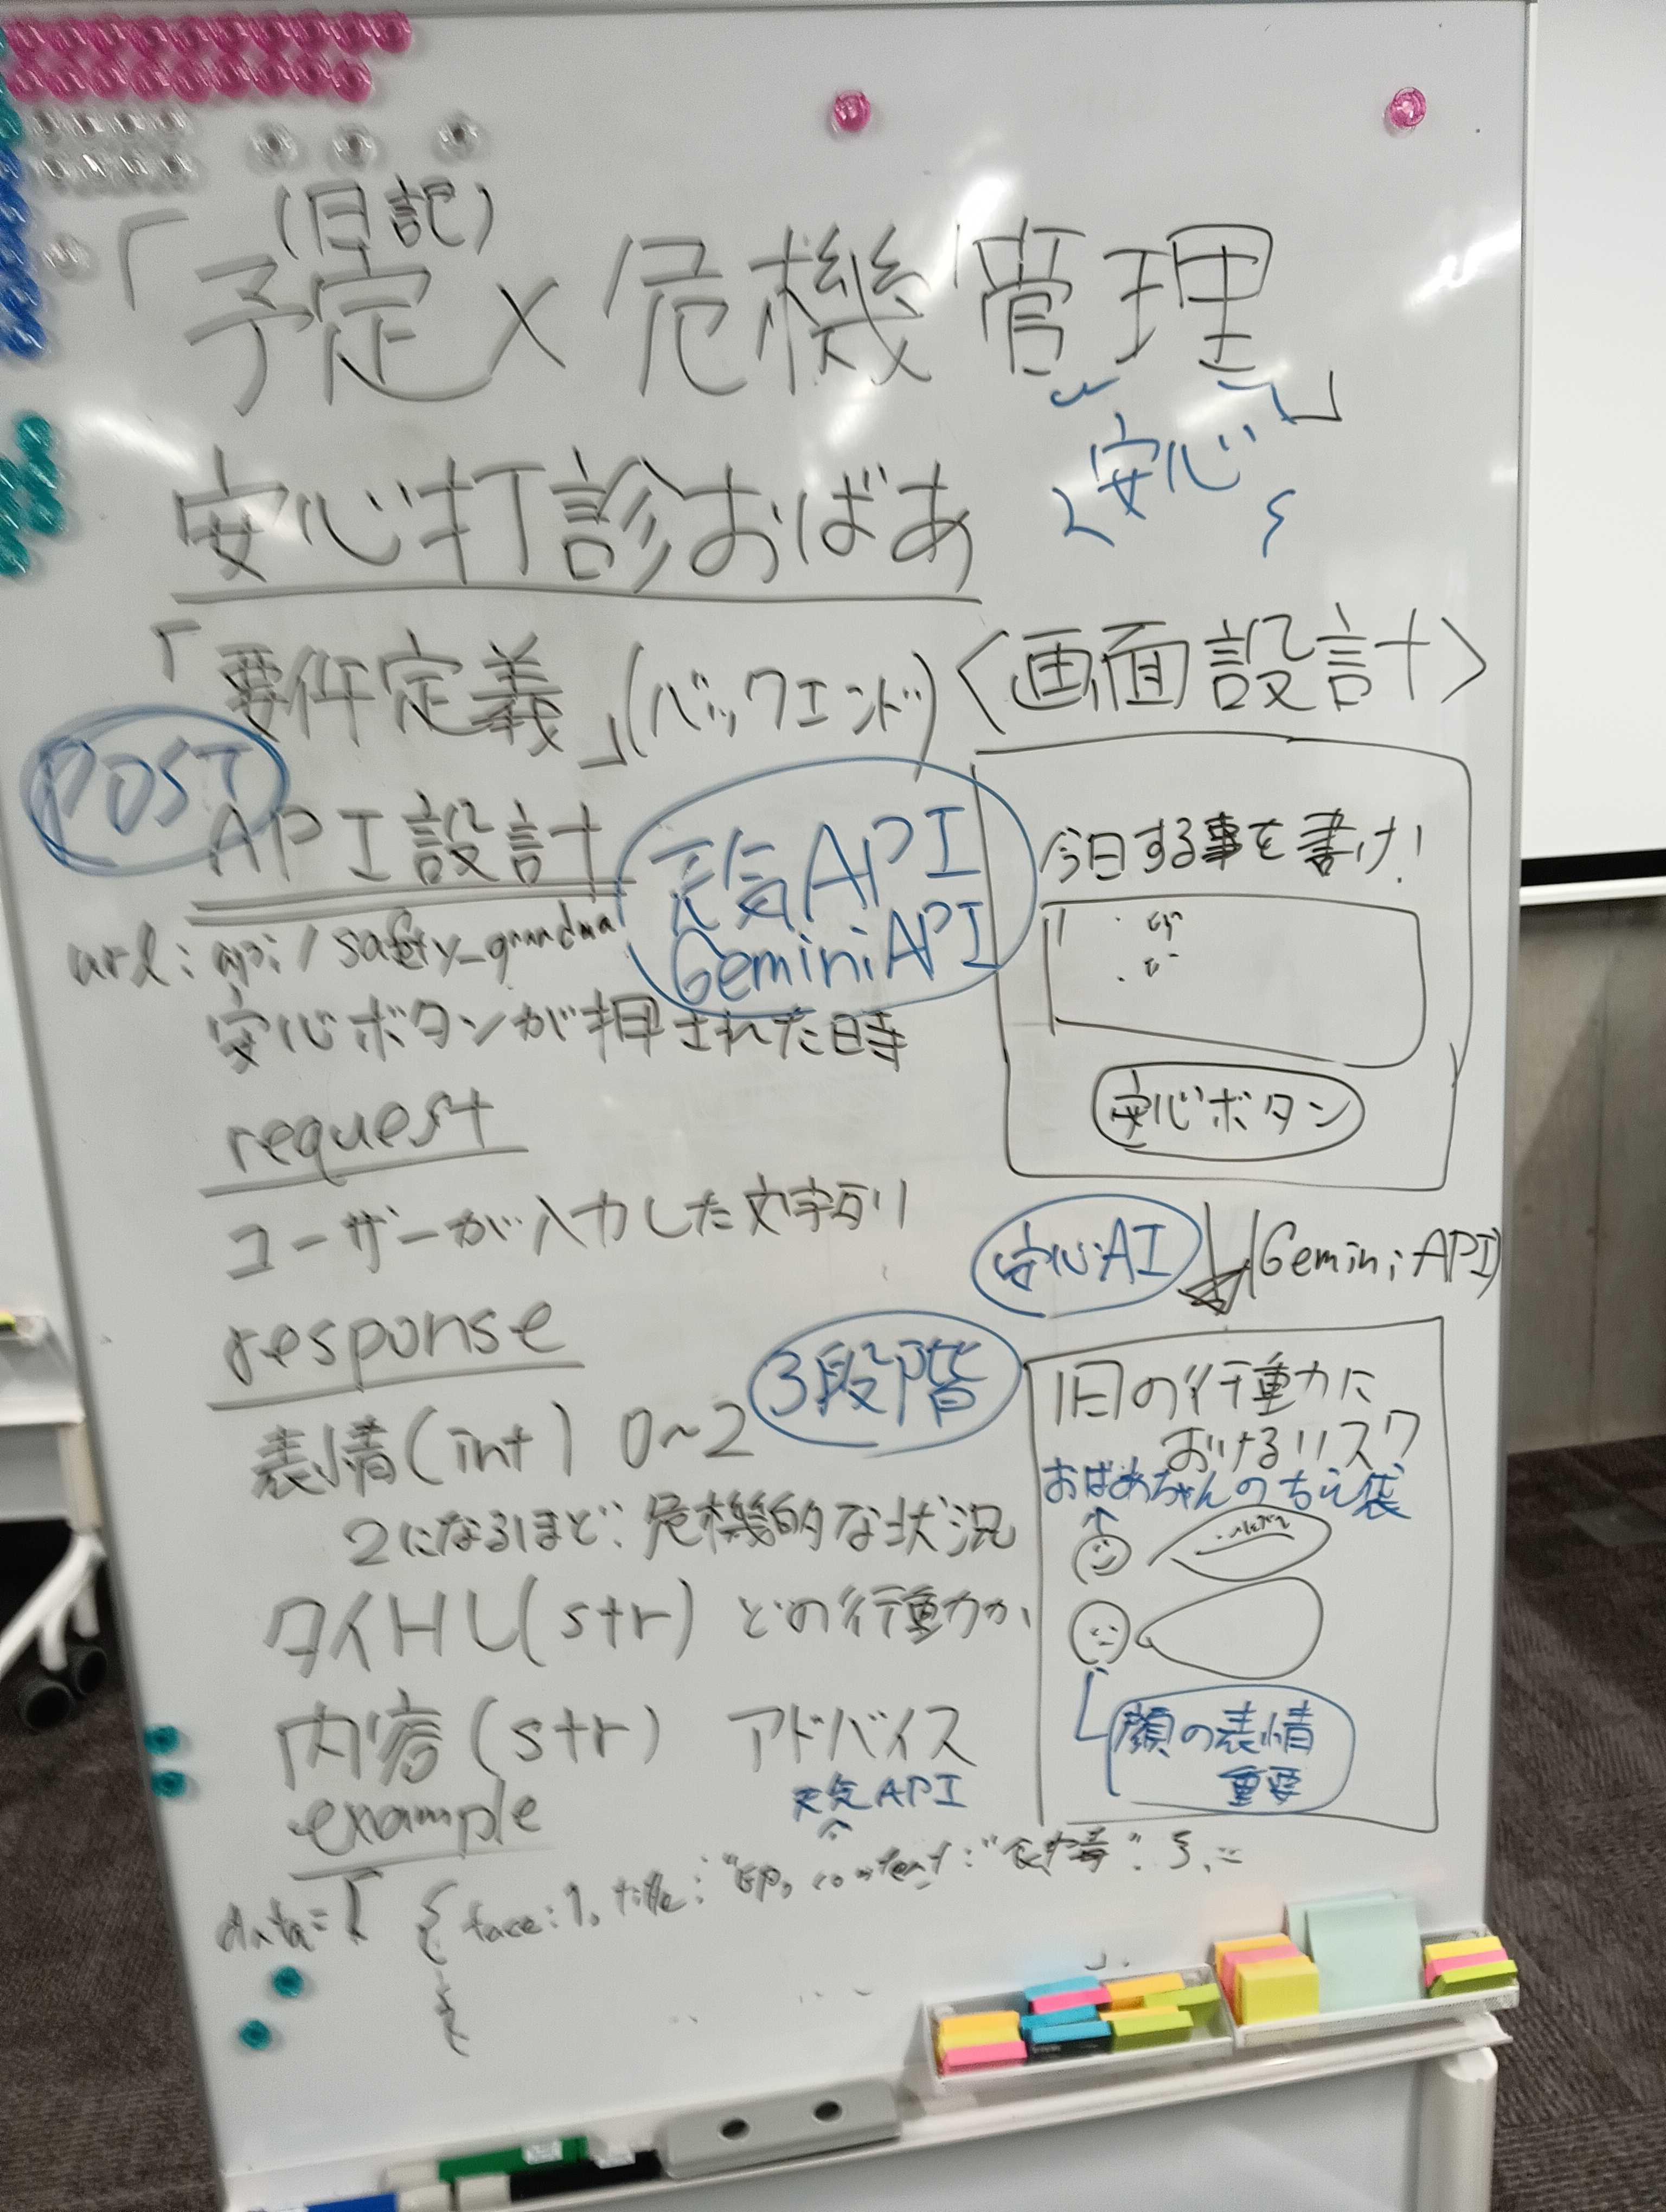 (日記)
「予定×危機管理」
安心
安心打診おばあ
「要件定義」(バックエンド)
POST
API設計
天気API
GeminiAPI
url: api/safety_grandma
安心ボタンが押された時
request
ユーザーが入力した文字列
response
表情(int) 0~2
3段階
2になるほど、危機的な状況
タイトル(str) どの行動か
内容(str) アドバイス
天気API
example
data=[ {face:1, title:
content:
<画面設計>
今日する事を書け!
安心ボタン
安心AI
(Gemini API)
1日の行動に
おけるリスク
おばあちゃんのちえ袋
顔の表情
重要